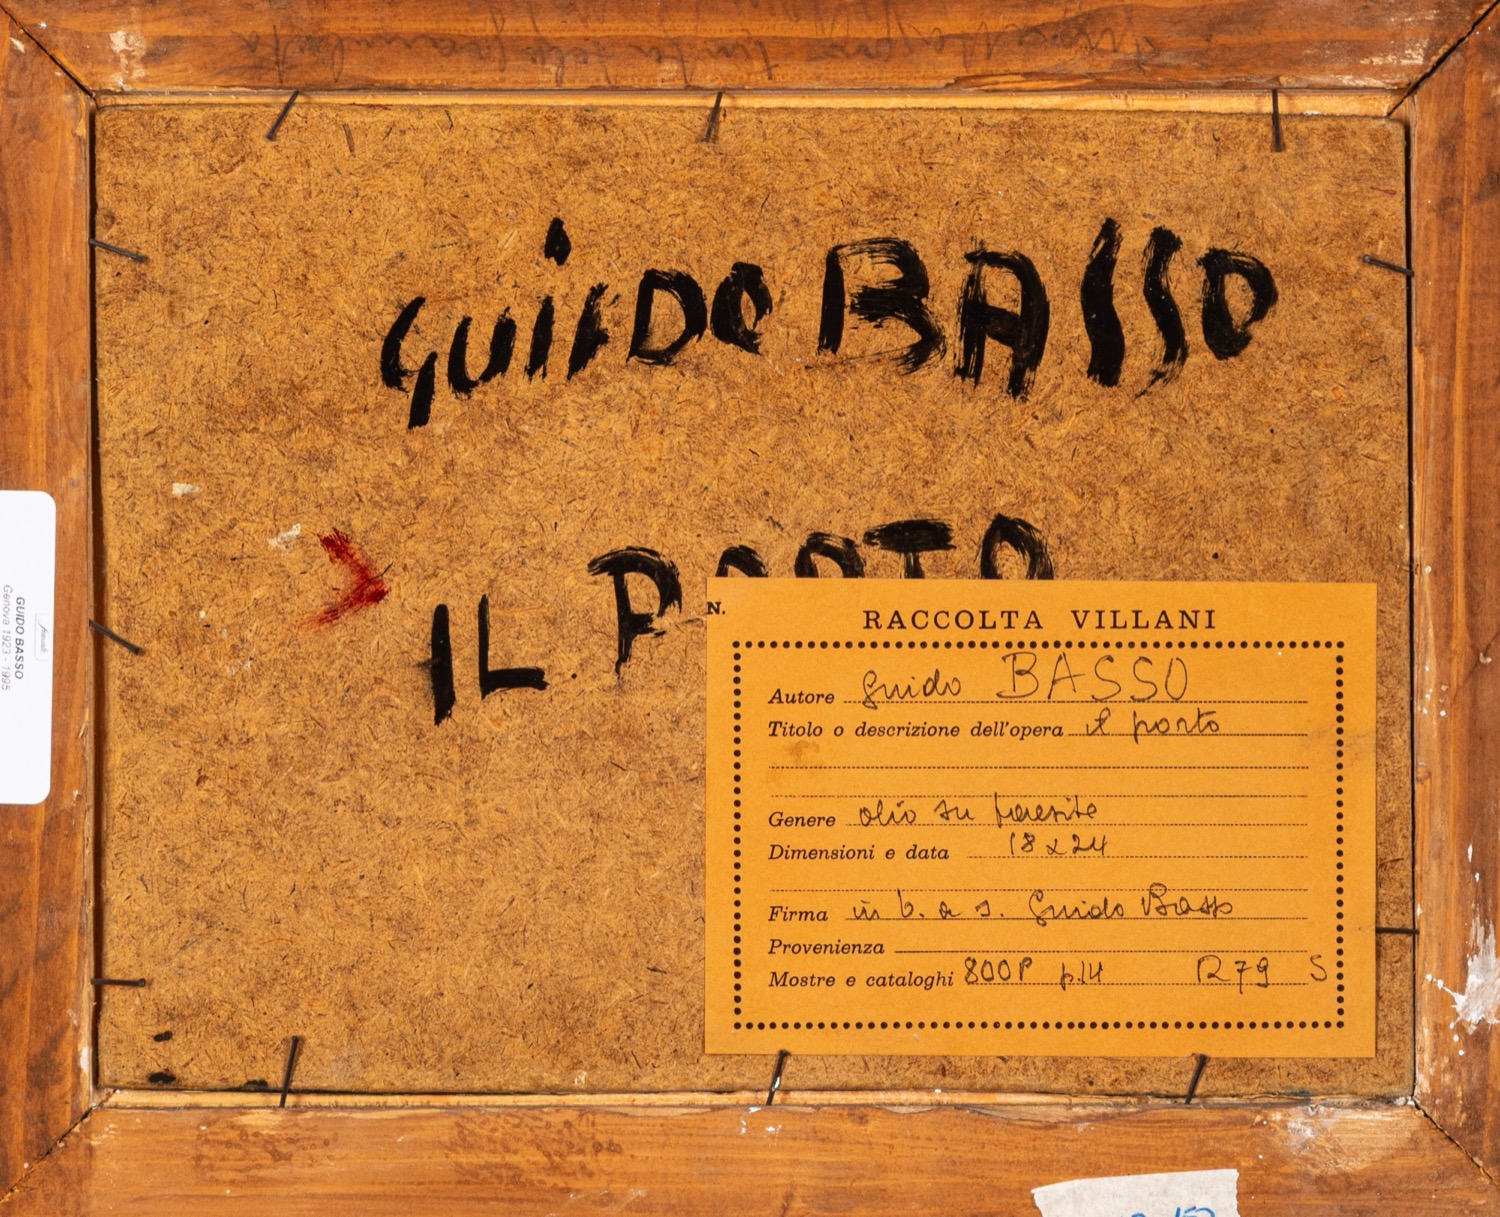 GUIDO BASSO
IL PORTO
N.
RACCOLTA VILLANI
Autore Guido BASSO
Titolo o descrizione dell'opera il porto
Genere olio su faesite
Dimensioni e data 18 x 24
Firma in b. a s. Guido Basso
Provenienza
Mostre e cataloghi 800P p.14 R79 S
GUIDO BASSO
Genova 1923 - 1995